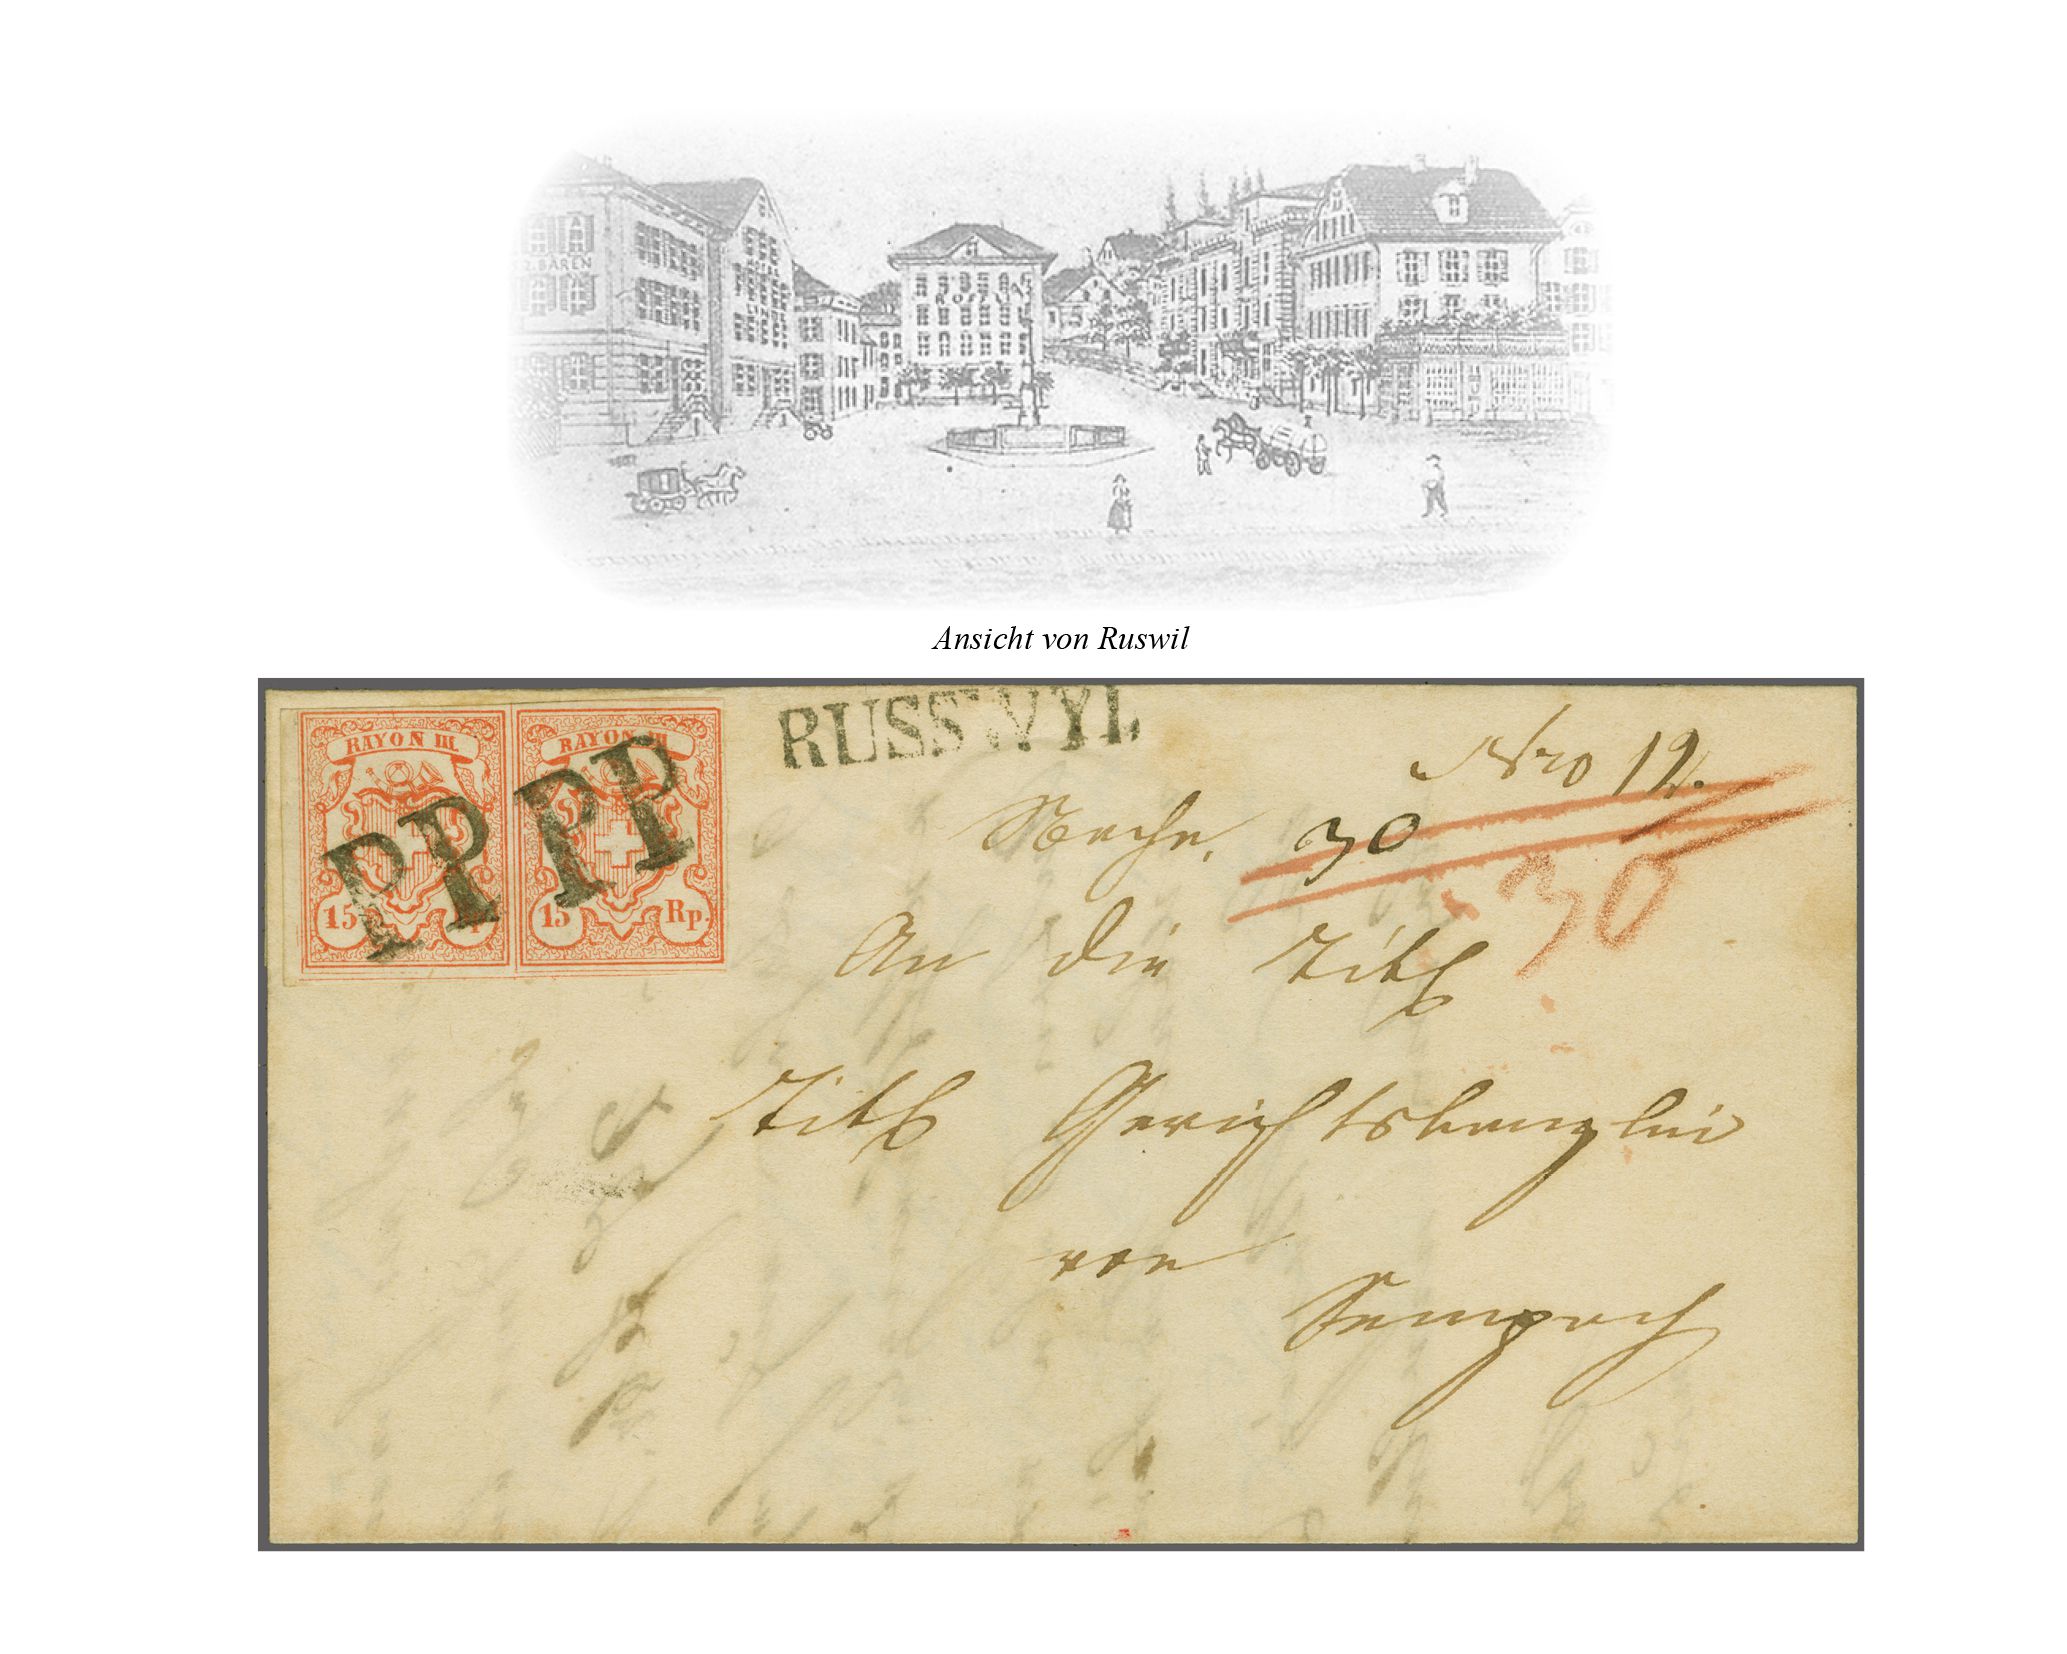 BÄREN
Ansicht von Ruswil
RAYON III. RAYON III
PP PP
15 15 Rp.
RUSSWYL
Nro 12.
Nachn. 30
30
An die Titl
Titl Gerichtskanzlei
von
Sempach